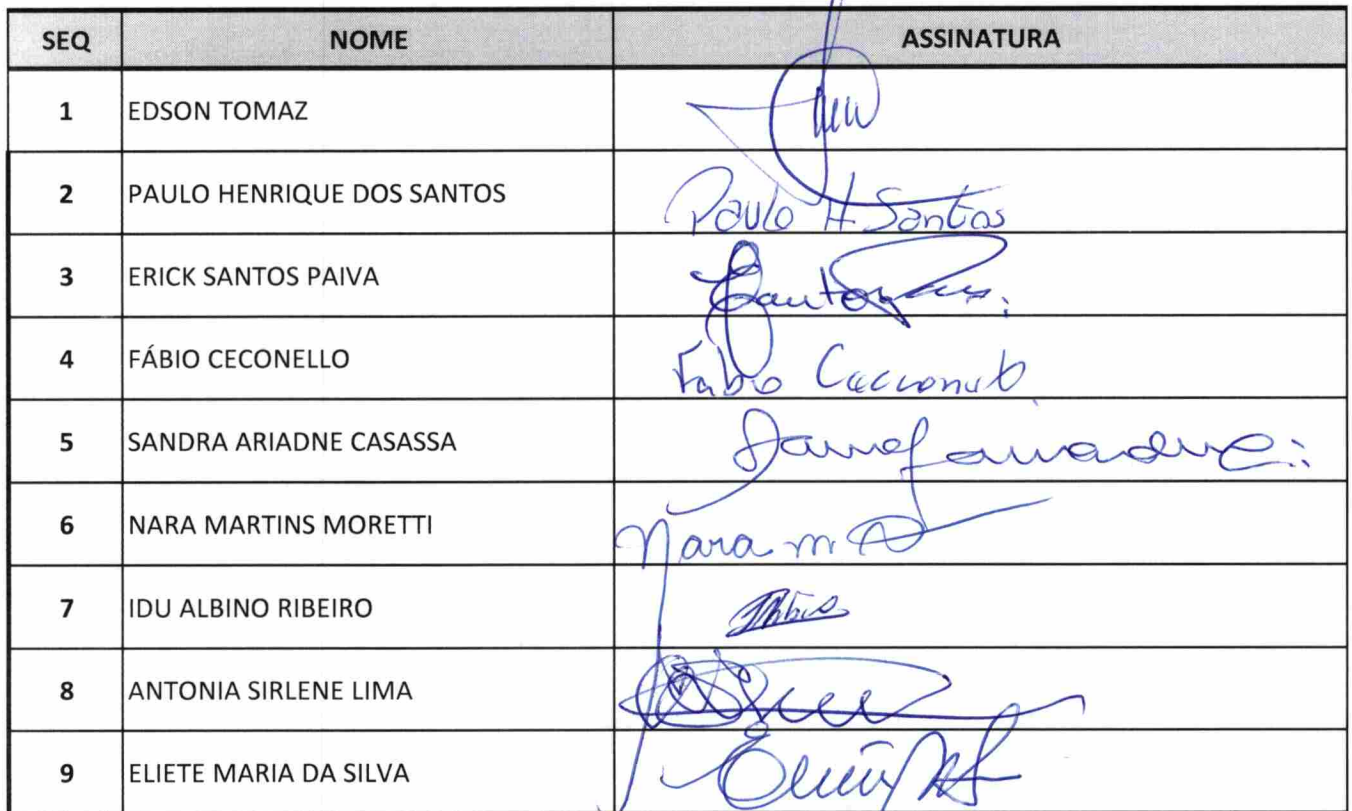 SEQ NOME ASSINATURA
1 EDSON TOMAZ
2 PAULO HENRIQUE DOS SANTOS Paulo H. Santos
3 ERICK SANTOS PAIVA
4 FÁBIO CECONELLO Fábio
5 SANDRA ARIADNE CASASSA
6 NARA MARTINS MORETTI Nara m
7 IDU ALBINO RIBEIRO
8 ANTONIA SIRLENE LIMA
9 ELIETE MARIA DA SILVA